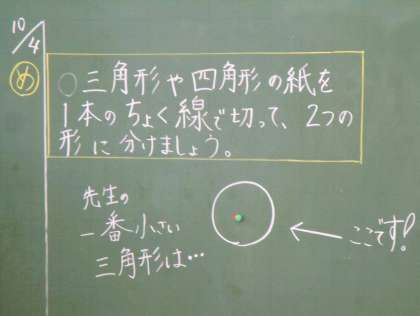 10/4
め
○三角形や四角形の紙を
1本のちょく線で切って、2つの
形に分けましょう。
先生の
一番小さい
三角形は…
ここです!